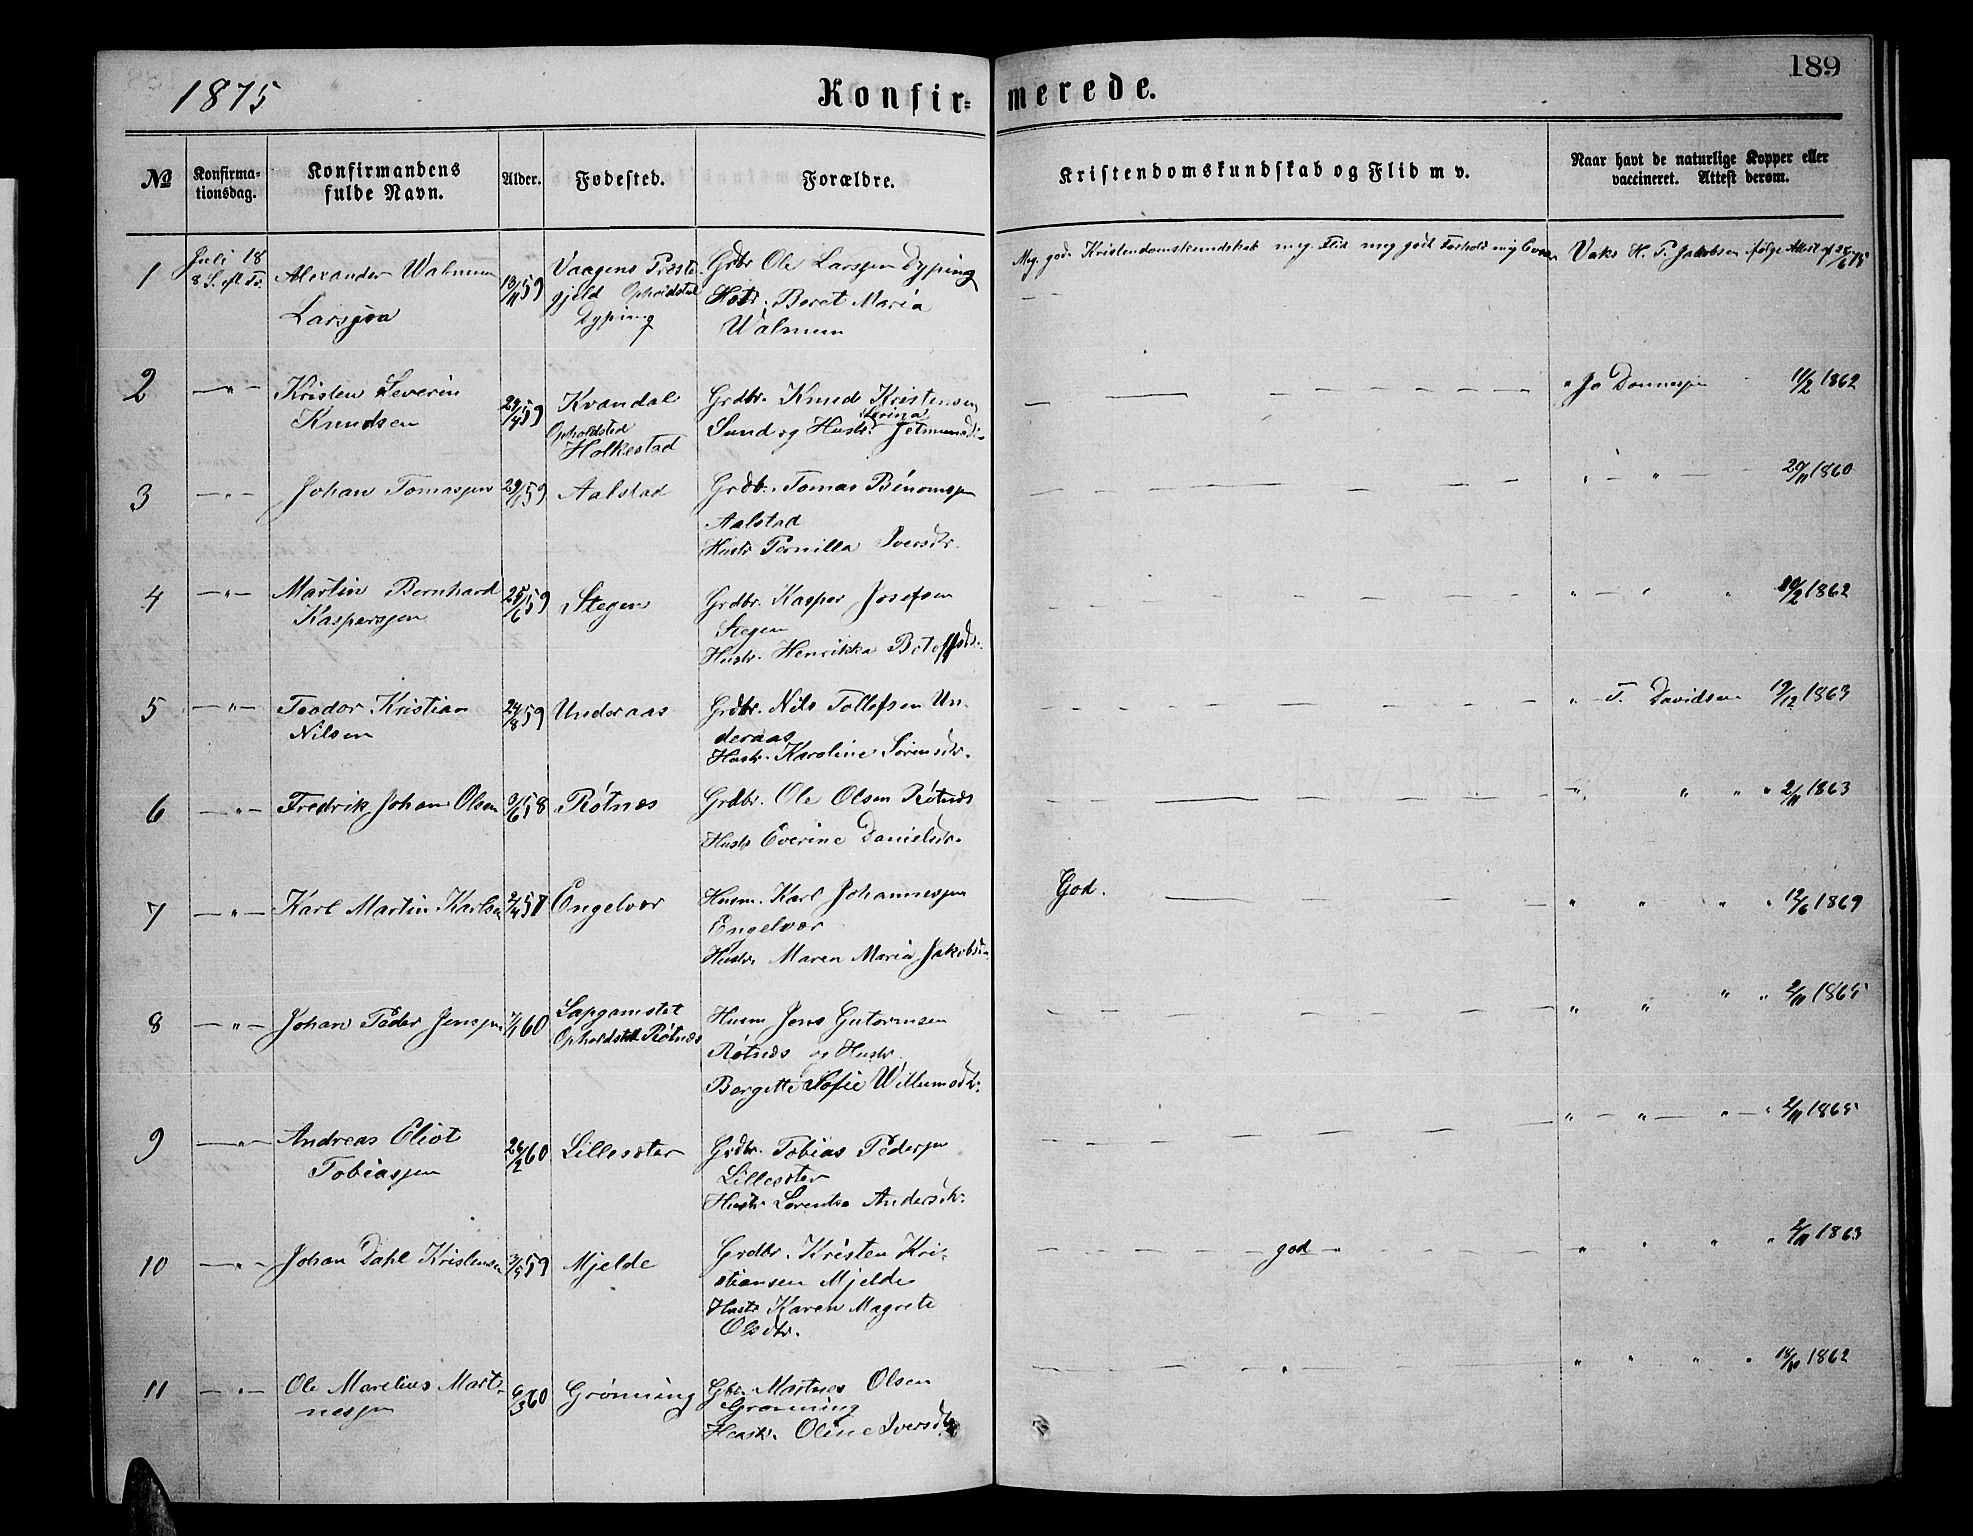 189
1875
Konfir=
merede.
No
Konfirma-
tionsdag.
Konfirmandens
fulde Navn.
Alder.
Fødested.
Forældre.
Kristendomskundskab og Flid m v.
Naar havt de naturlige Kopper eller
vaccineret. Attest derom.
1
Juli 18
8 S. eft Tr.
Alexander Walnum
Larsjen
13/11 59
Vaagens Preste
gjeld Opholdsted
Dyping
Grdbr Ole Larssen Dyping
Hstr. Beret Maria
Walnum
Meg. god. Kristendomskundskab meg. Flid meg god Forhold
Vaks H. P. Jakobsen følge Attest af
2
— " —
Kristen Severin
Knudsen
29/4 59
Kvandal
Opholdsted
Holkestad
Grdbr. Knud Kristensen
Sund og Hustr. Serina
" Jo Donnesjen 11/2 1862
3
— " —
Johan Tomasjen
Aalstad
Grdbr. Tomas
Aalstad
Hustr Pernilla Iversdtr.
" — " — 20/11 1860
4
— " —
Martin Bernhard
Kaspersjen
25/6 59
Stegen
Grdbr. Kasper Josefsen
Stegen
Hustr. Henrikka
" — " " 1862
5
— " —
Teodor Kristian
Nilsen
24/8 59
Underaas
Grdbr. Nils Tollefsen Un-
deraas
Hustr. Karoline Sørensdtr.
" T. Davidsen 19/12 1863
6
— " —
Fredrik Johan Olsen
9/6 58
Røtnes
Grdbr. Ole Olsen Røtnes
Hustr Everine Danielsdtr.
" " " " 2/11 1863
7
— " —
Karl Martin Karlsen
Engelvær
Husm. Karl Johannesjen
Engelvær
Hustr. Maren Maria Jakobsdtr
God.
" " " " 12/6 1869
8
— " —
Johan Peder Jensjen
7/1 60
Opholdsted Røtnes
Husm Jens Gutormsen
Røtnes og Hustr.
Bergitte Sofie Willumsdtr.
" " " " 2/11 1865
9
— " —
Andreas Eliot
Tobiasjen
26/2 60
Lillesæter
Grdbr. Tobias Pedersjen
Lillesæter
Hustr. Lorentse Andersdtr.
" — " — " — " 2/11 1865
10
— " —
Johan Dahl Kristensen
59
Mjelde
Grdbr. Kristen Kri-
stiansen Mjelde
Hustr Karen Magrete
Olsdtr.
god
" " " " 2/11 1863
11
— " —
Ole Marelius Mart-
nesjen
6/3 60
Grønning
Gbr. Martnes Olsen
Grønning
Hustr. Oline Iversdtr
" " " " 18/10 1862